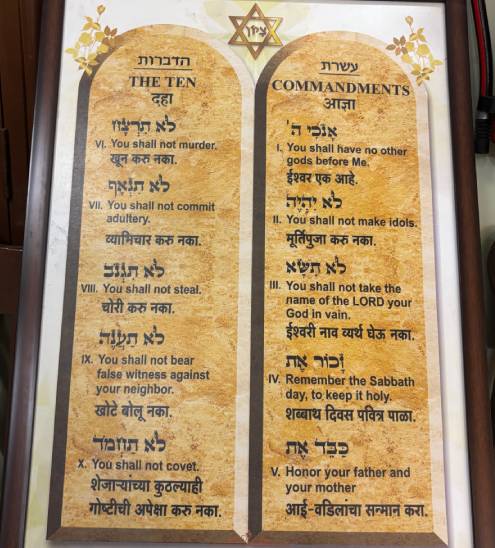 ציון
עשרת
הדברות
THE TEN
COMMANDMENTS
दहा
आज्ञा
אָנֹכִי ה'
I. You shall have no other
gods before Me.
ईश्वर एक आहे.
לֹא יִהְיֶה
II. You shall not make idols.
मूर्तिपुजा करू नका.
לֹא תִשָּׂא
III. You shall not take the
name of the LORD your
God in vain.
ईश्वरी नाव व्यर्थ घेऊ नका.
זָכוֹר אֶת
IV. Remember the Sabbath
day, to keep it holy.
शब्बाथ दिवस पवित्र पाळा.
כַּבֵּד אֶת
V. Honor your father and
your mother
आई-वडिलांचा सन्मान करा.
לֹא תִרְצָח
VI. You shall not murder.
खून करु नका.
לֹא תִנְאָף
VII. You shall not commit
adultery.
व्याभिचार करु नका.
לֹא תִגְנֹב
VIII. You shall not steal.
चोरी करु नका.
לֹא תַעֲנֶה
IX. You shall not bear
false witness against
your neighbor.
खोटे बोलू नका.
לֹא תַחְמֹד
X. You shall not covet.
शेजाऱ्यांच्या कुठल्याही
गोष्टीची अपेक्षा करु नका.